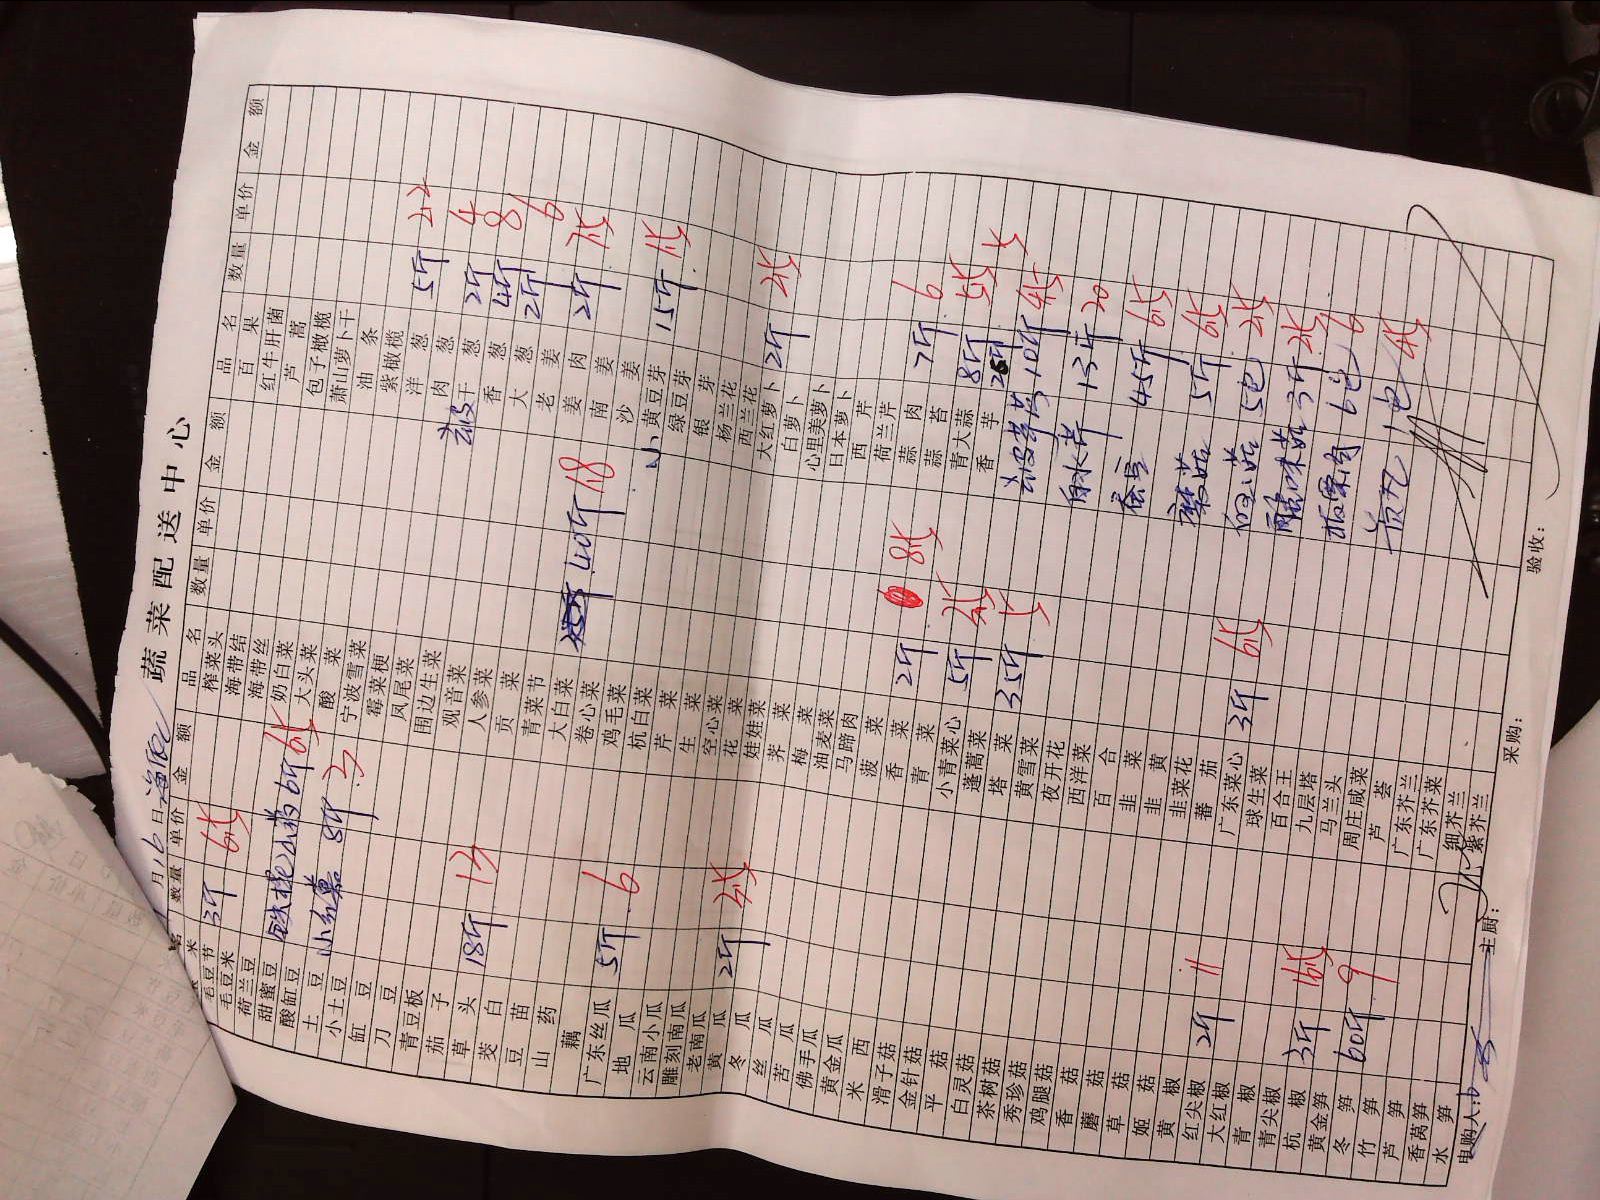 蔬菜配送中心
月16日
品名 数量 单价 金额 品名 数量 单价 金额 品名 数量 单价 金额
毛豆节 3斤
毛豆米
荷兰豆
甜蜜豆
酸缸豆
土豆
小土豆
缸豆
刀豆
青豆板
茄子
草头 18斤 13
茭白
豆苗
山药
藕
广东丝瓜 5斤 6
地瓜
云南小瓜
雕刻南瓜
老南瓜
黄瓜 2斤
冬瓜
丝瓜
苦瓜
佛手瓜
黄金瓜
米西
滑子菇
金针菇
平菇
白灵菇
茶树菇
秀珍菇
鸡腿菇
香菇
蘑菇
草菇
姬菇
黄椒
红尖椒 2斤 11
大红椒
青椒
青尖椒
杭椒 3斤
黄金笋
冬笋 60斤 9
竹笋
芦笋
香莴笋
水笋
小红薯 8斤 3
榨菜头
海带结
海带丝
奶白菜
大头菜
酸菜
宁波雪菜
霉菜梗
凤尾菜
围边生菜
观音菜
人参菜
贡菜
青菜节
大白菜
卷心菜
鸡毛菜
杭白菜
芹菜
生菜
空心菜
花菜
娃娃菜
荠菜
梅菜
油麦菜
马蹄肉
菠菜
香菜 2斤
青菜
小青菜心 5斤
蓬蒿菜
塔菜 35斤
黄雪菜
夜开花
西洋菜
百合
韭菜
韭黄
韭菜花
蕃茄
广东菜心 3斤
球生菜
百合王
九层塔
马兰头
周庄咸菜
芦荟
广东芥兰
广东芥菜
细芥兰
紫芥兰
百果
红牛肝菌
芦蒿
包子橄榄
萧山萝卜干
油条
紫橄榄
洋葱 5斤
肉葱
干葱 2斤 4
香葱 4斤 8
大葱 2斤 6
老姜
姜肉 2斤
南姜
沙姜
黄豆芽 15斤
绿豆芽
银芽
杨兰花
西兰花
大红萝卜 2斤
白萝卜
心里美萝卜
日本萝卜
西芹
荷兰芹
蒜肉 7斤 6
蒜苔
青大蒜 8斤
香芋
10斤
13斤 20
蚕豆 45斤
蘑菇 5斤
白玉菇 5包
3斤
6包 6
贡丸 1包
申购人:
主厨:
采购:
验收: